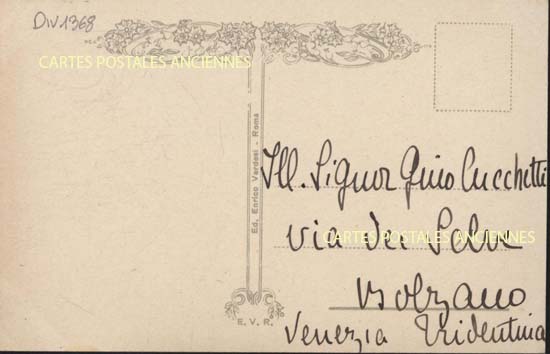 Div1368
CARTES POSTALES ANCIENNES
Ed. Enrico Verdesi - Roma
Ill. Signor Gino Cucchetti
Via dei
CARTES POSTALES ANCIENNES
Bolzano
E. V. R.
Venezia Tridentina